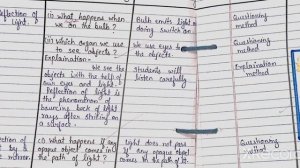 Reflection of
Light.
(i) What happens when
we on the bulb?
(ii) which organ we use
to see objects?
Explaination-
We see the
objects with the help of
our eyes and light.
Reflection of light is
the phenomenon of
bouncing back of light
rays after striking on
a surface.
Bulb emits light on
doing switch on
We use eyes to
the objects.
Students will
listen carefully
Questioning
method
Questioning
method
Explaination
method
by a
mirror
what happens if any
opaque object comes in
the path of light?
light does not pass
if any opaque object
comes in the path of it.
Questioning
method